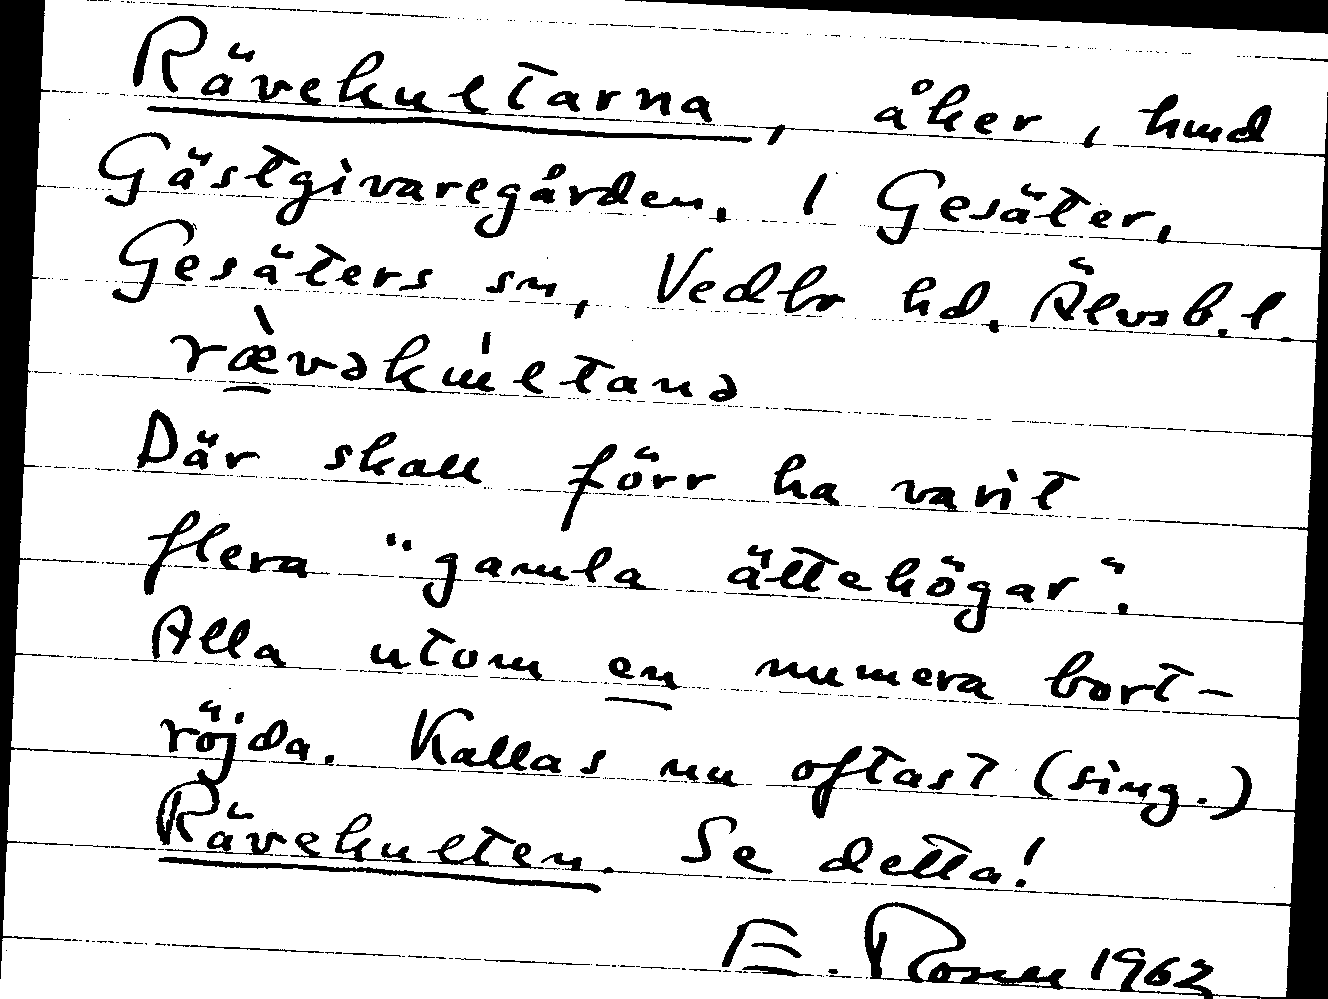 Rävekultarna, åker, hmd
Gästgivaregården, 1 Gesäter,
Gesäters sn, Vedbo hd. Älvsb. l.
rævəkultanə
Där skall förr ha varit
flera "gamla ättehögar".
Alla utom en numera bort-
röjda. Kallas nu oftast (sing.)
Rävekulten. Se detta!
E. Rosell 1962